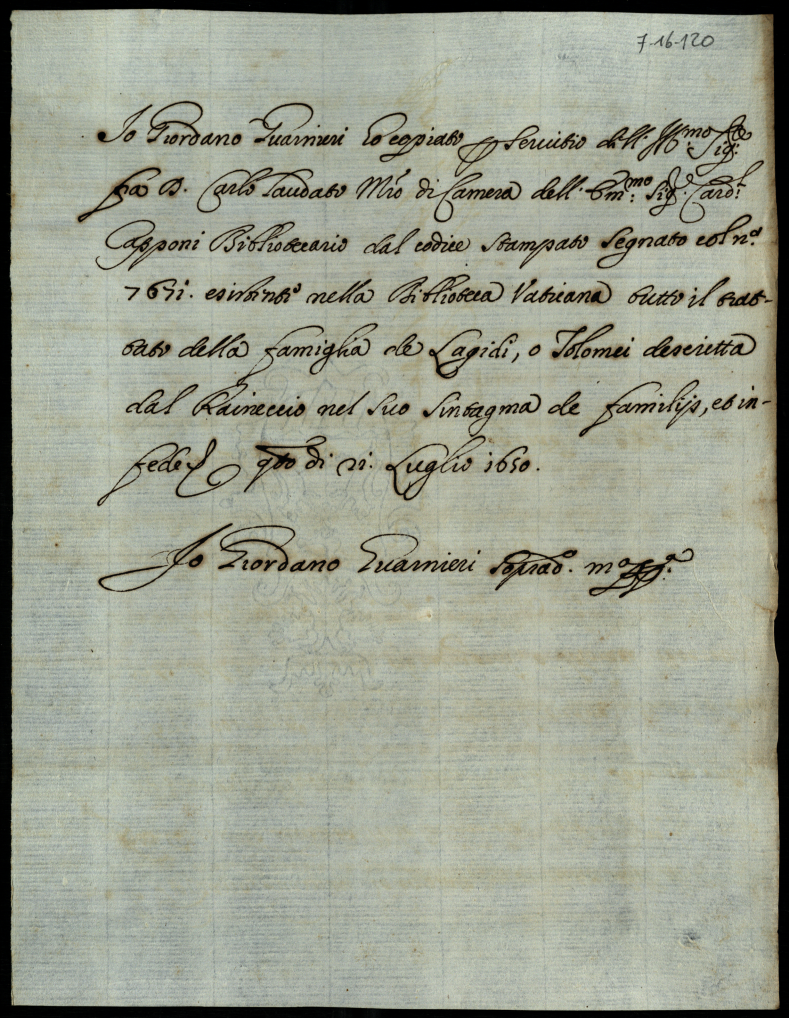 7-16-120
Io Giordano Guarnieri ho copiato p servitio dell' Ill:mo Sig:re
fra D. Carlo Mro di Camera dell' Em:mo Sig:r Card:l
Capponi Bibliotecario dal codice stampato segnato col n.o
7671. esistente nella Biblioteca Vaticana tutto il trat-
tato della famiglia de Lagidi, o Tolomei descritta
dal Raineccio nel suo sintagma de familijs, et in-
fede qto di 21. Luglio 1650.
Io Giordano Guarnieri soprado. mo pp.a